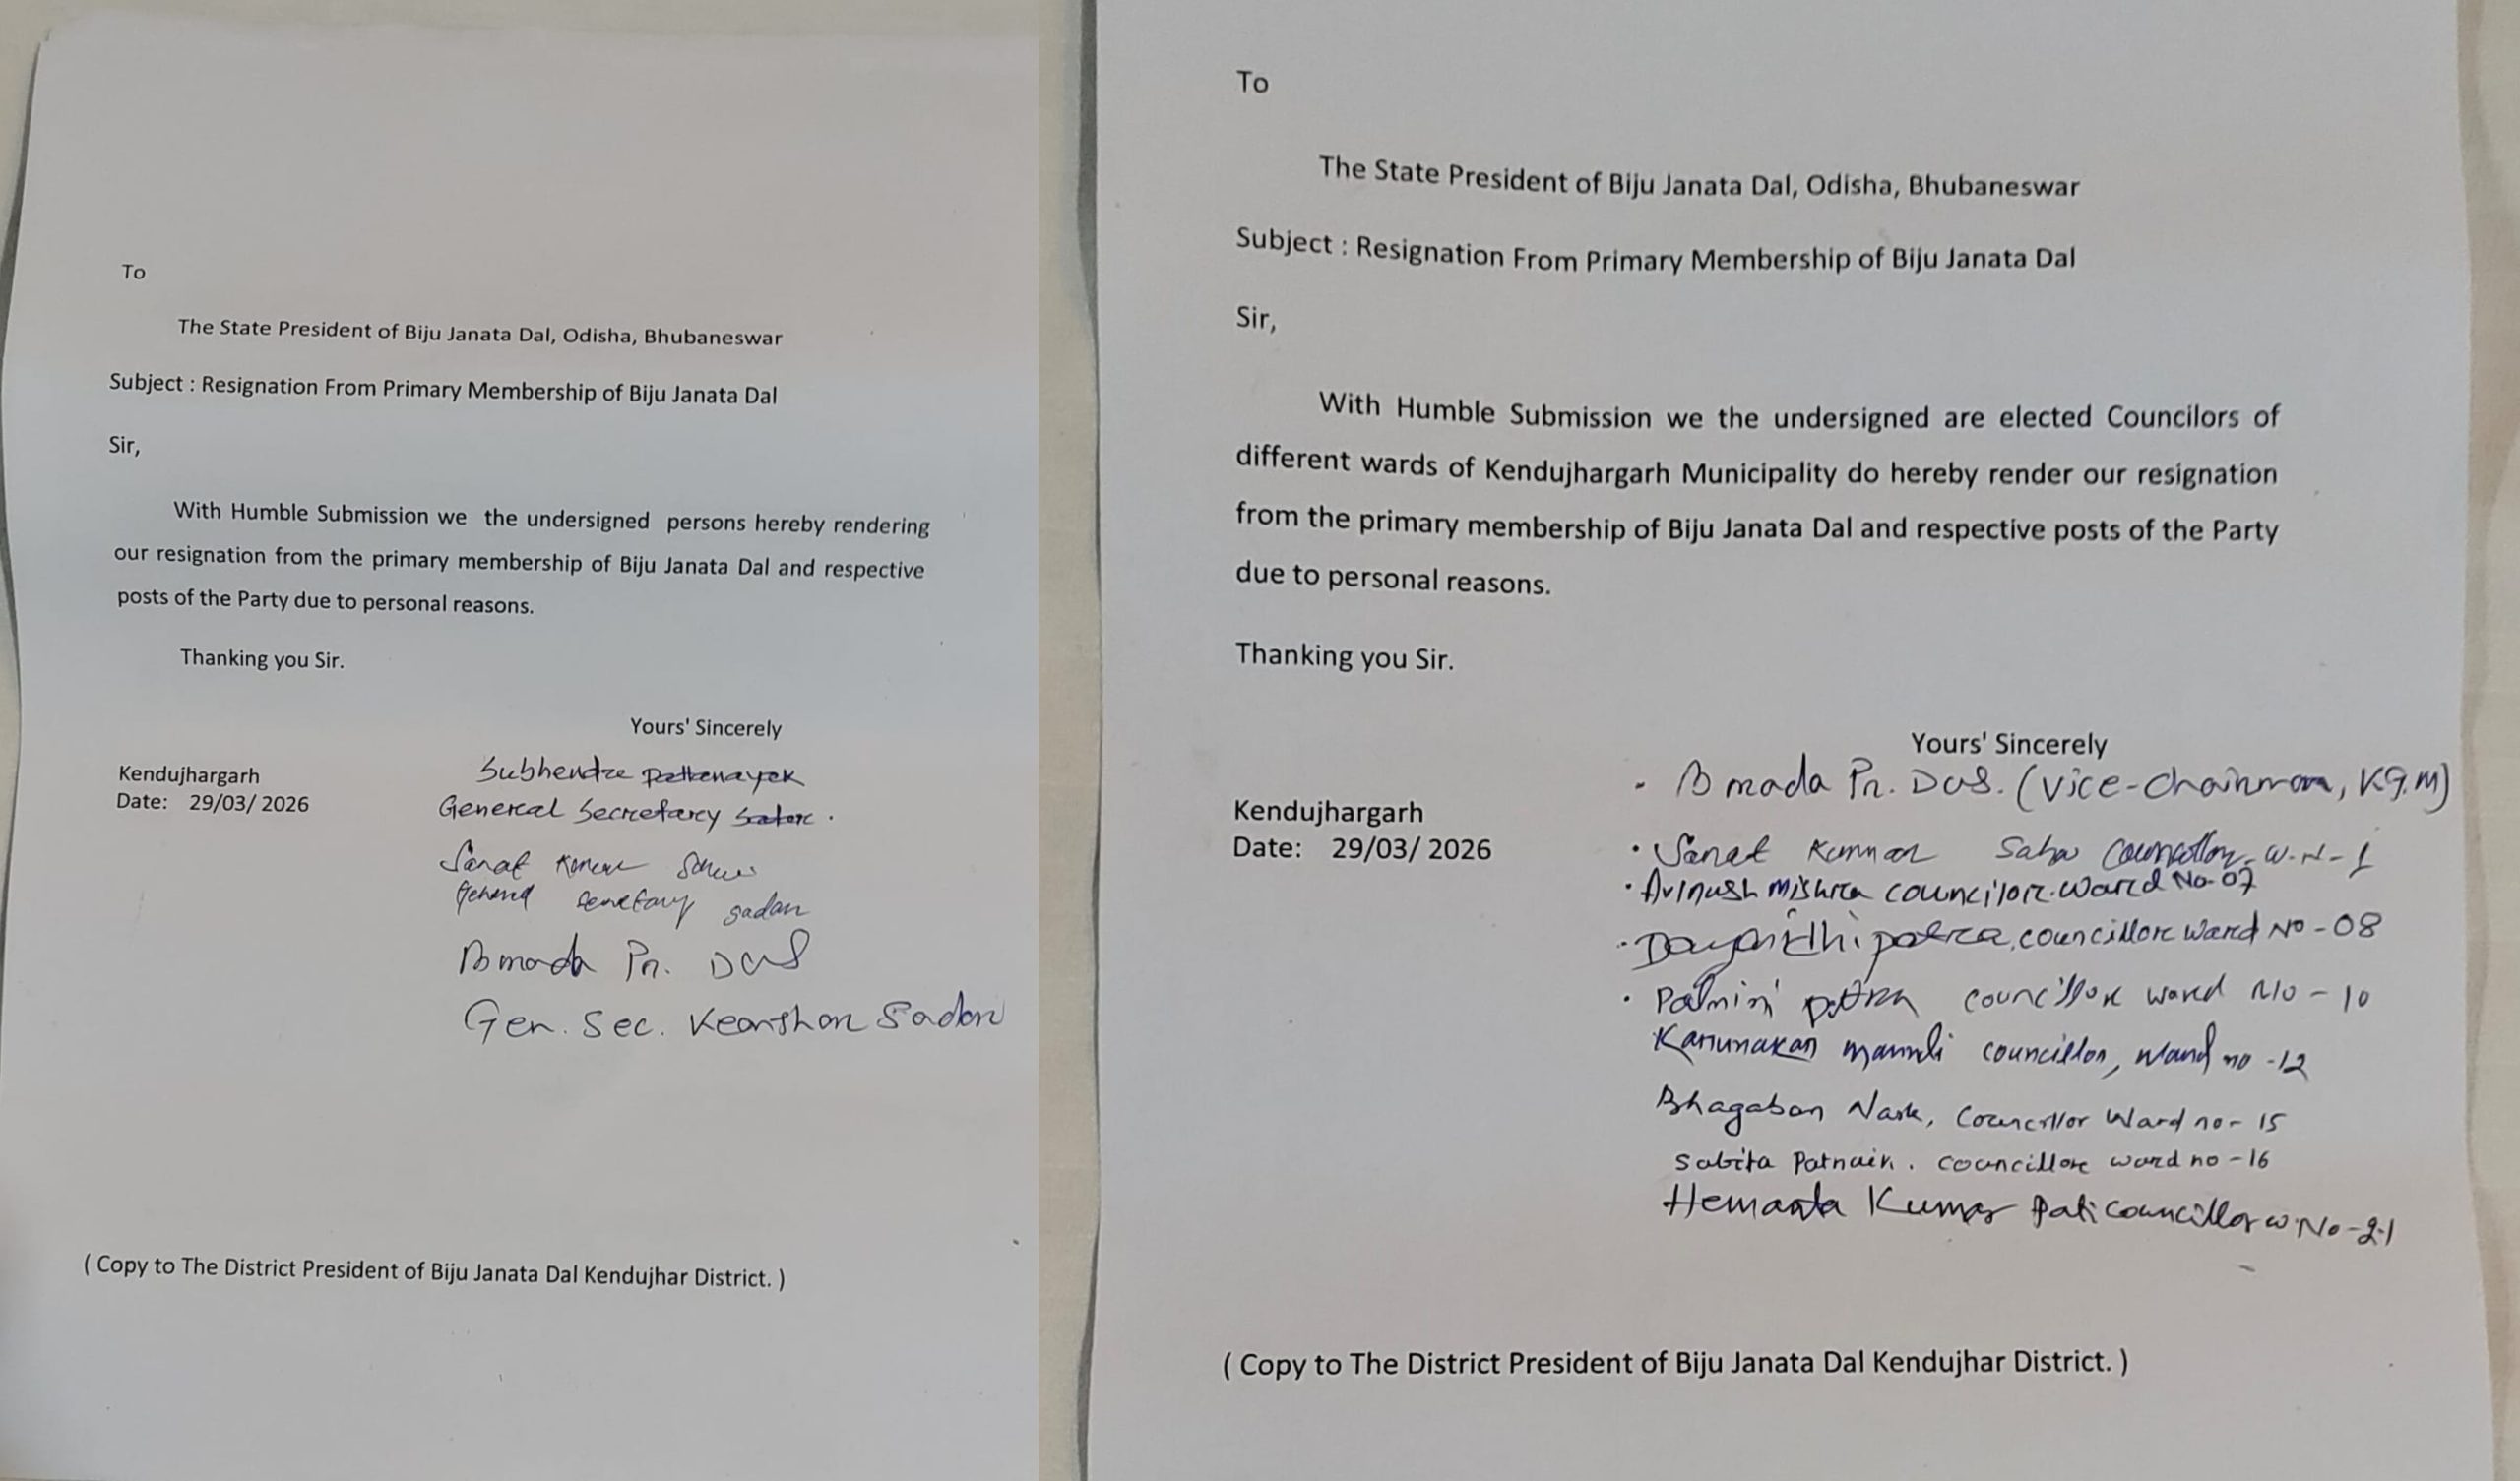 To
The State President of Biju Janata Dal, Odisha, Bhubaneswar
Subject : Resignation From Primary Membership of Biju Janata Dal
Sir,
With Humble Submission we the undersigned persons hereby rendering
our resignation from the primary membership of Biju Janata Dal and respective
posts of the Party due to personal reasons.
Thanking you Sir.
Yours' Sincerely
Kendujhargarh
Date: 29/03/ 2026
Subhendre
Genercal Secretarcy
Sanat
Pn. DAS
Gen. Sec. Keonjhar Sadar
( Copy to The District President of Biju Janata Dal Kendujhar District. )
To
The State President of Biju Janata Dal, Odisha, Bhubaneswar
Subject : Resignation From Primary Membership of Biju Janata Dal
Sir,
With Humble Submission we the undersigned are elected Councilors of
different wards of Kendujhargarh Municipality do hereby render our resignation
from the primary membership of Biju Janata Dal and respective posts of the Party
due to personal reasons.
Thanking you Sir.
Yours' Sincerely
Kendujhargarh
Date: 29/03/ 2026
Pn. DAS. (Vice-Chairman, KGM)
Sanat Kumar Sahu Councillor W.N-1
Avinash Mishra councilorc. Warcd No-07
councillorc Ward No-08
councillor ward No-10
Karunakar councillor, Ward no-12
Bhagaban Naik, Councillor Ward no-15
Sabita Patnaik. councillorc ward no-16
Hemanta Kumar Pati Councillor W.No-21
( Copy to The District President of Biju Janata Dal Kendujhar District. )